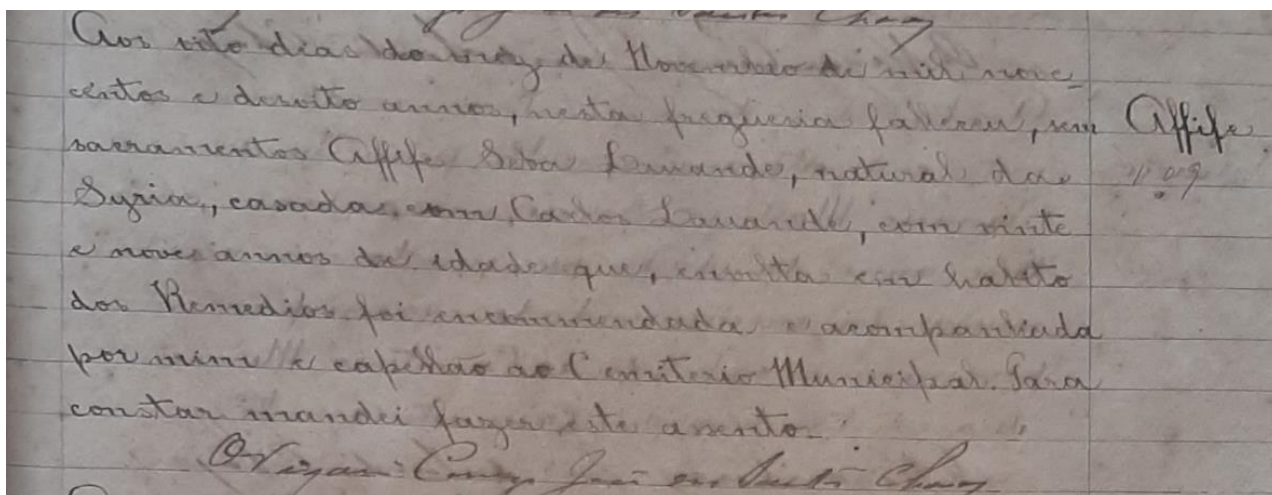 Aos oito dias do mez de Novembro de mil nove
centos e dezoito annos, nesta freguesia falleceu, sem
sacramentos Affife Saba Lauande, natural da
Syria, casada com Carlos Lauande, com vinte
e nove annos de idade que, envolta em habito
dos Remedios foi encommendada e acompanhada
por mim e capellão ao Cemiterio Municipal. Para
constar mandei fazer este assento.
O Vigario Conego José dos Santos Chaves
Affife